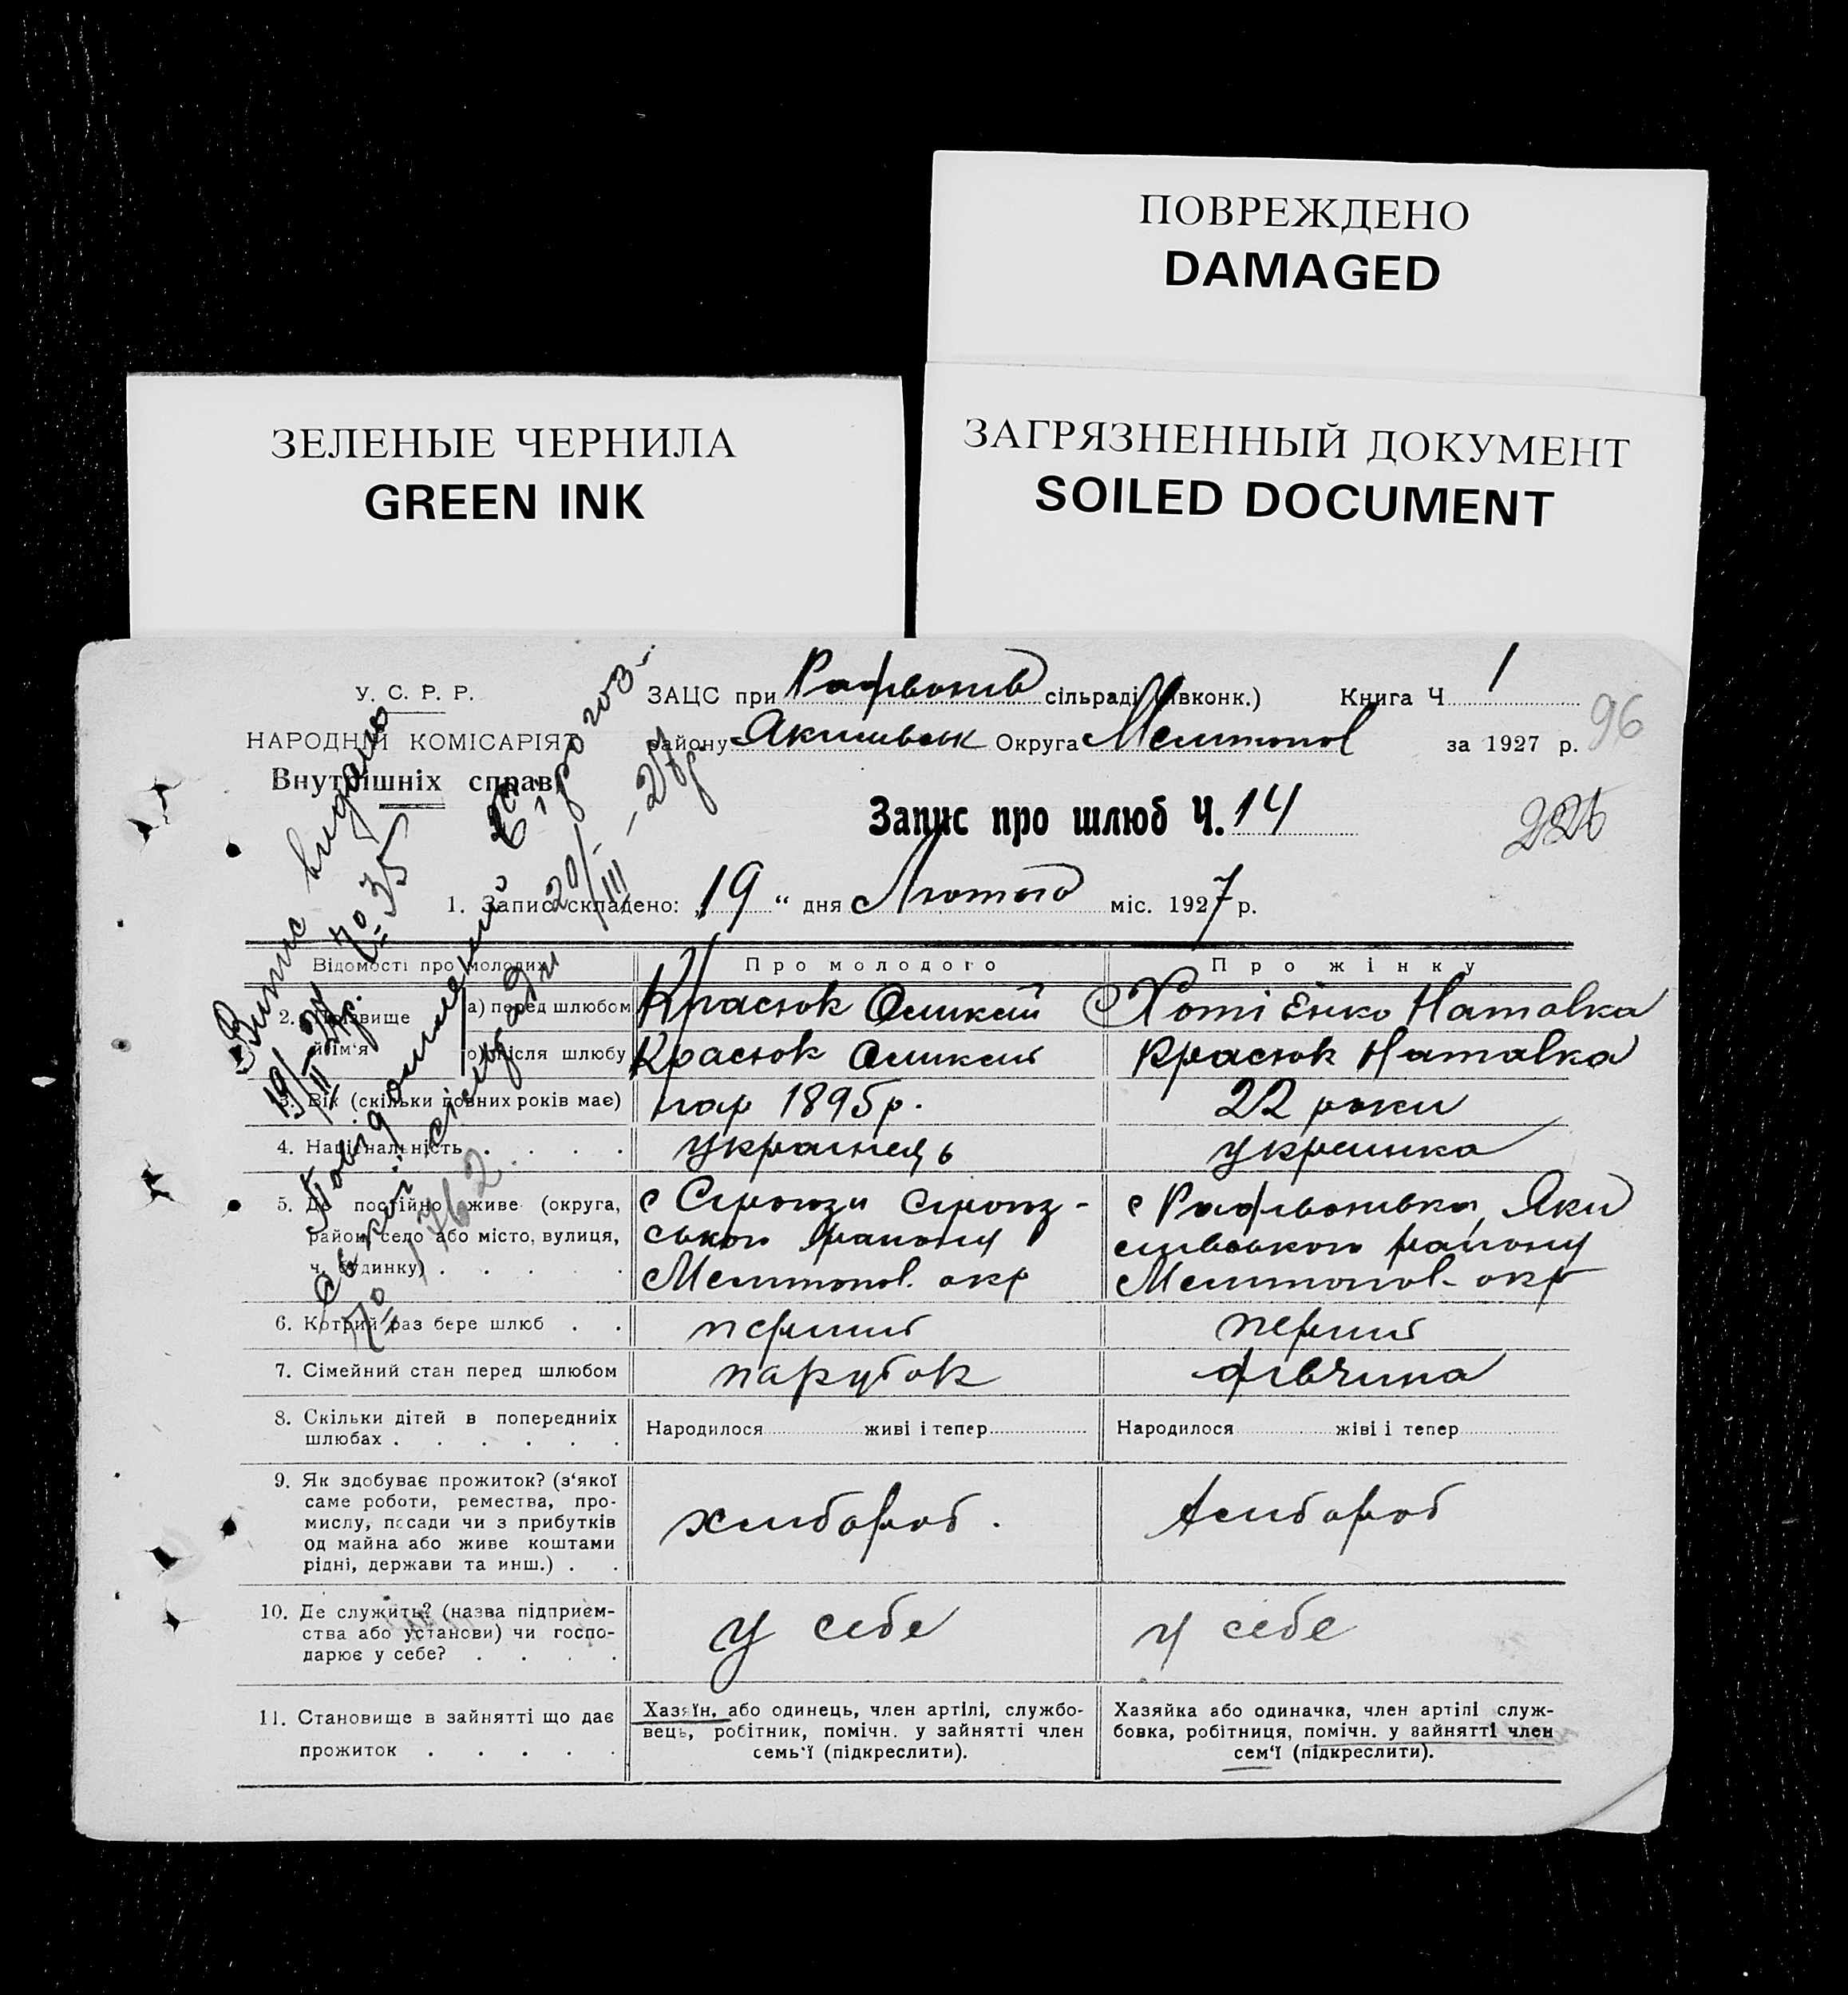 ПОВРЕЖДЕНО
DAMAGED
ЗЕЛЕНЫЕ ЧЕРНИЛА
GREEN INK
ЗАГРЯЗНЕННЫЙ ДОКУМЕНТ
SOILED DOCUMENT
У. С. Р. Р.
НАРОДНІЙ КОМІСАРІЯТ
Внутрішніх справ
ЗАЦС при сільраді Книга Ч 1
району Округа Мелитопол за 1927 р. 96
Запис про шлюб Ч. 14
1. Запис складено: „19“ дня Лютого міс. 1927 р.
Витяг видано
19/III 27р. № 35
Повідомлений
№ 1762
20/III – 27р.
Відомості про молодих Про молодого Про жінку
2. Прізвище й ім'я а) перед шлюбом Красюк Олексій Хотієнко Наталка
після шлюбу Красюк Олексій Красюк Наталка
3. Вік (скільки повних років має) нар 1895р. 22 роки
4. Національність українець українка
5. Де постійно живе (округа, с Сірогози Сірогоз-
район, село або місто, вулиця, ського району району
ч. будинку) Мелітопол. окр Мелитопол- окр
6. Котрий раз бере шлюб перший перший
7. Сімейний стан перед шлюбом парубок дівчина
8. Скільки дітей в попередниіх шлюбах Народилося живі і тепер Народилося жіві і тепер
9. Як здобуває прожиток? (з'якої
саме роботи, ремества, про-
мислу, посади чи з прибутків
од майна або живе коштами
рідні, держави та инш.)
хлібороб. хлібороб
10. Де служить? (назва підприєм-
ства або установи) чи госпо-
дарює у себе?
у себе у себе
11. Становище в зайнятті що дає
прожиток
Хазяїн, або одинець, член артілі, службо-
вець, робітник, помічн. у зайнятті член
семь'ї (підкреслити).
Хазяйка або одиначка, член артілі служ-
бовка, робітниця, помічн. у зайнятті член
сем'ї (підкреслити).